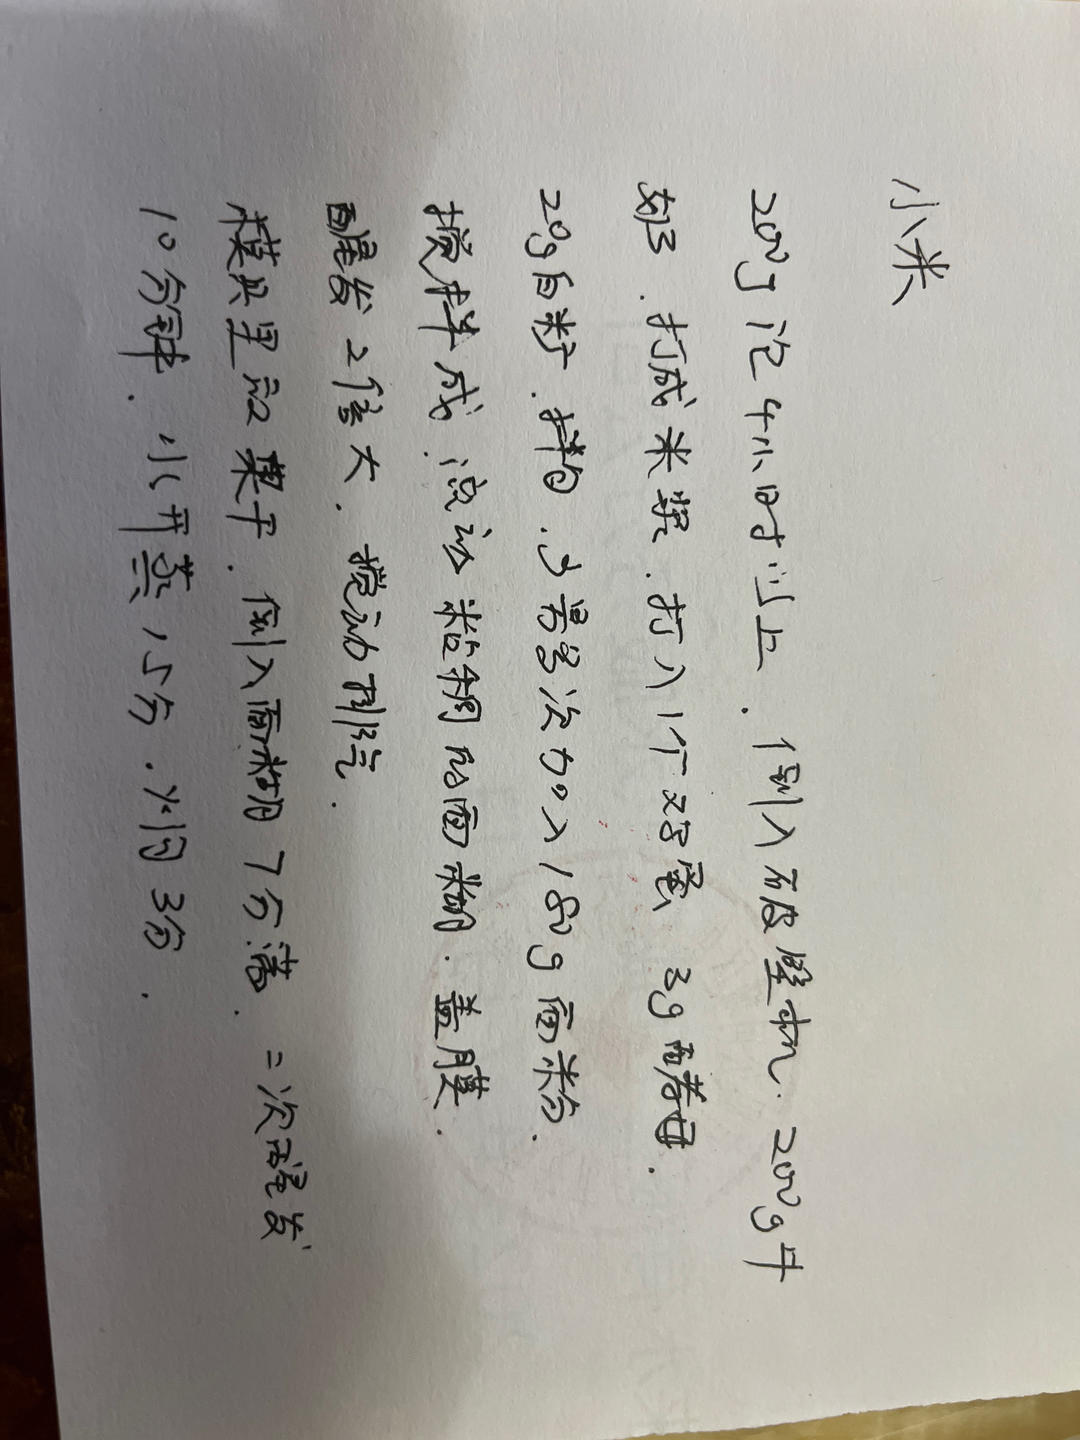 小米
200g 泡4小时以上. 倒入破壁机. 200g牛
奶. 打成米浆. 打入1个鸡蛋 3g酵母.
20g白糖. 拌匀. 少量多次加入180g面粉.
搅拌成 流动粘稠的面糊. 盖膜.
醒发2倍大. 搅动排气.
模具里放果干. 倒入面糊7分满. 二次醒发
10分钟. 水开蒸15分. 火闷3分.